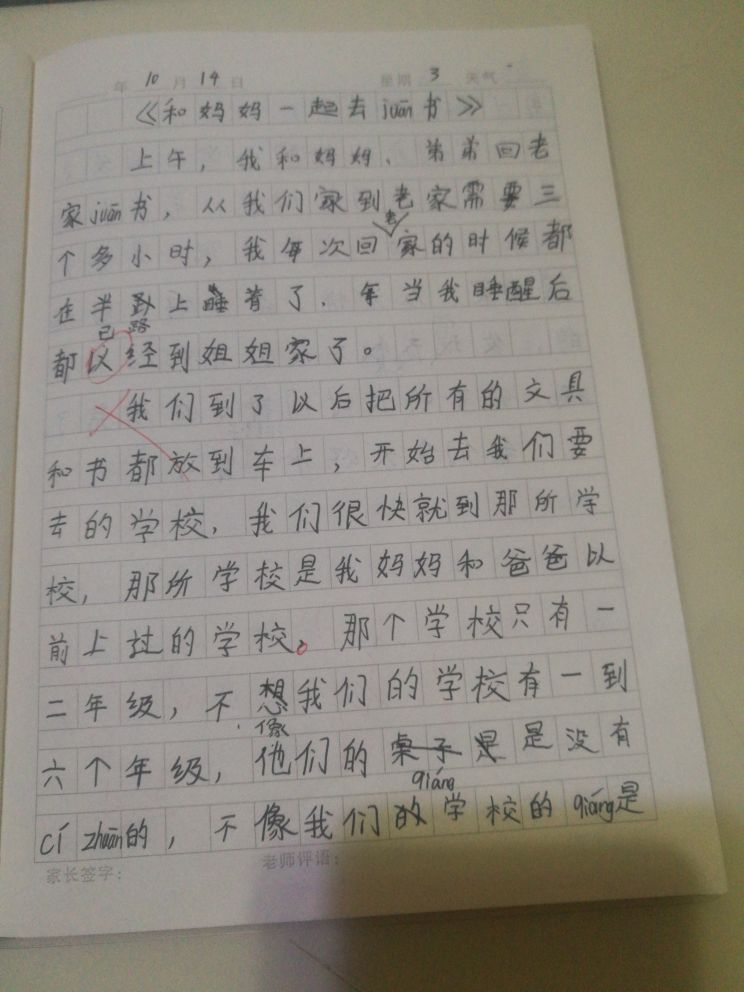 年 10 月 14 日 星期 3 天气
《和妈妈一起去juān书》
上午，我和妈妈、弟弟回老
家juān书，从我们家到老家需要三
个多小时，我每次回老家的时候都
在半路上睡着了．当我睡醒后
都已经到姐姐家了。
我们到了以后把所有的文具
和书都放到车上，开始去我们要
去的学校，我们很快就到那所学
校，那所学校是我妈妈和爸爸以
前上过的学校。那个学校只有一
二年级，不像我们的学校有一到
六个年级，他们的qiáng是没有
cí zhuān的，不像我们学校的qiáng是
家长签字： 老师评语：